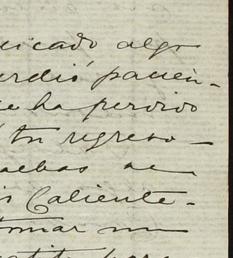 nicado algo
erdió pacien-
e ha perdido
tu regreso—
uebas
Caliente-
tomar un